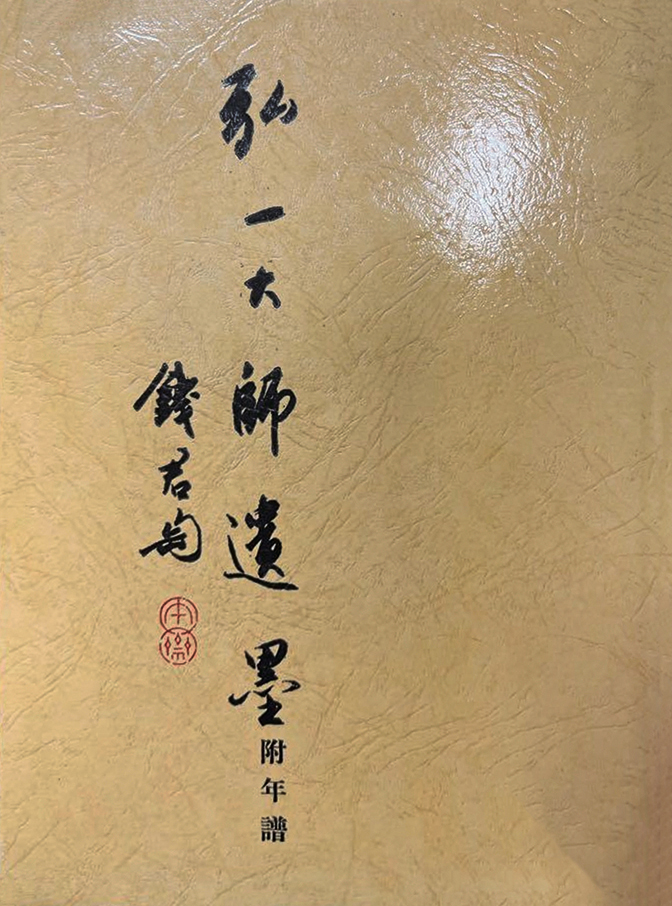 弘一大師遺墨
附年譜
錢君匋